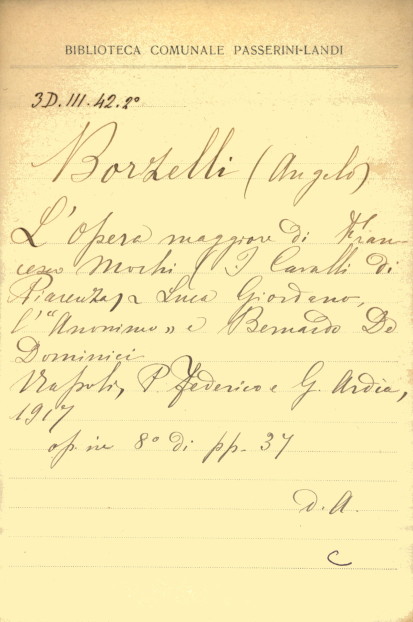 BIBLIOTECA COMUNALE PASSERINI-LANDI
3D.III.42.2º
Borzelli (Angelo)
L'opera maggiore di Fran-
cesco Mochi (I Cavalli di
Piacenza) Luca Giordano,
l'"Anonimo" e Bernardo De
Dominici
Napoli, P. Federico e G. Ardia,
1917
op. in 8º di pp. 37
d. A.
C